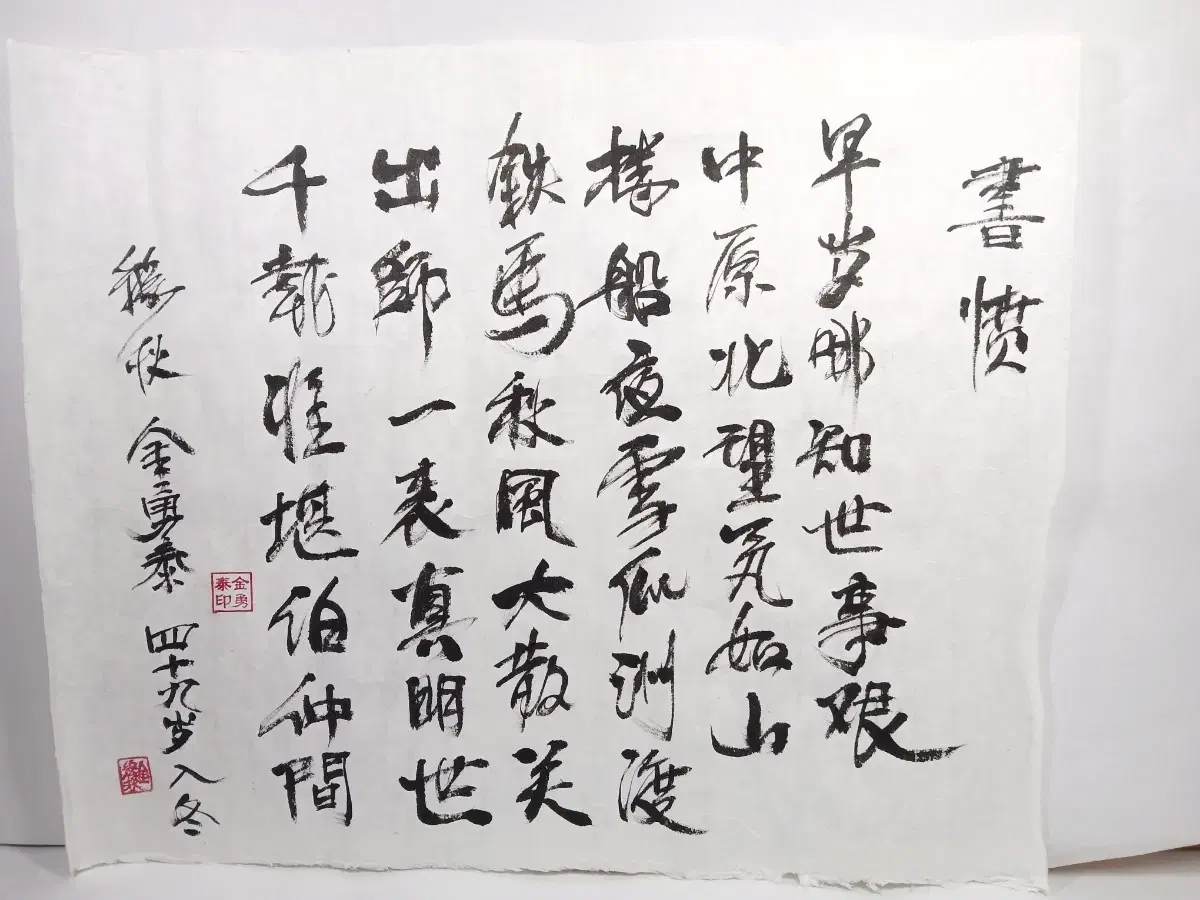 書愤
早岁哪知世事艰
中原北望氣如山
楼船夜雪瓜洲渡
鉄馬秋風大散关
出師一表真明世
千載谁堪伯仲間
秋 金勇泰 四十九岁入冬
金勇泰印